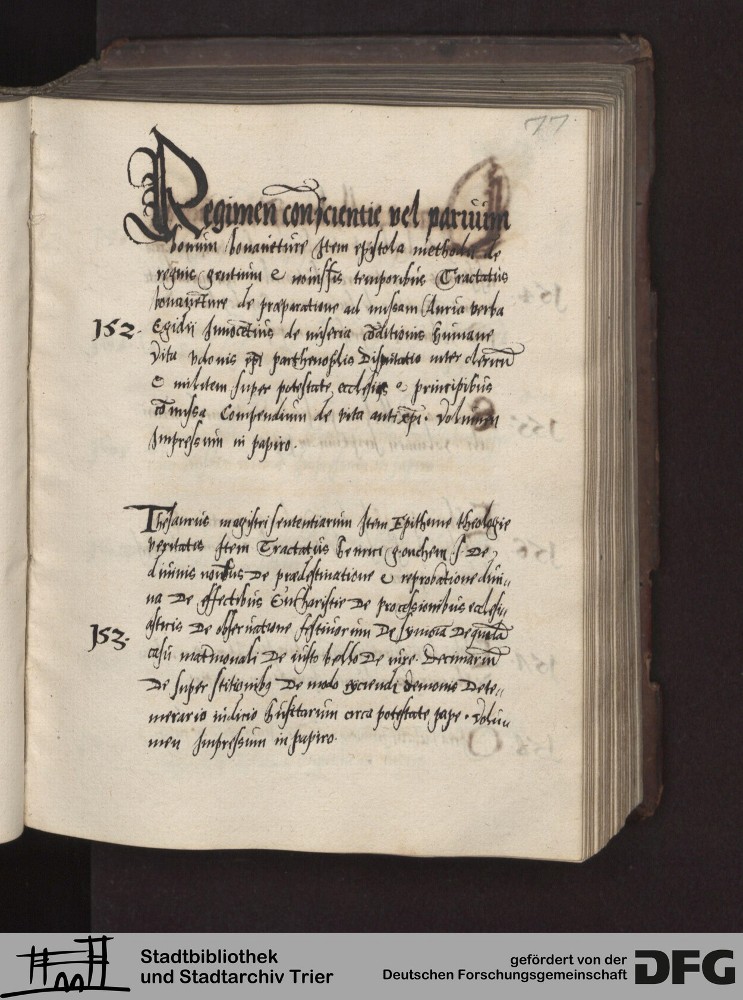 77.
Regimen conscientie vel parvum
bonum bonaventure Item epistola methodii de
regnis gentium & novissis temporibus Tractatus
bonavēture de praeparatione ad missam Auria verba
152. Egidii Innocētius de miseria cōditionis humane
Vita udonis epī parthenopilis Disputatio inter clericū
& militem super potestate ecclesie & principibus
cōmissa Compendium de vita antixpī. Volumen
Impressum in papiro.
Thesaurus magistri sententiarum Item Epithome theologie
veritatis Item Tractatus henrici gorichem De
divinis nomībus De praedestinatione & reprobatione divi„
na De effectibus Eucharistie De processionibus ecclesi„
153. asticis De observatione festivorum De symonia De quodā
casu matrimonali De iusto bello De iure Decimarum
De superstitionibus De modo eyciendi demonis De te„
merario iudicio husitarum circa potestate pape. Volu„
men Impressum in papiro.
Stadtbibliothek
und Stadtarchiv Trier
gefördert von der
Deutschen Forschungsgemeinschaft
DFG